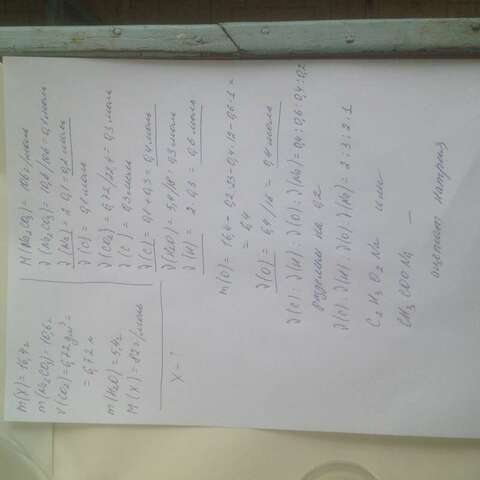 m(X) = 16,4 г
m(Na2CO3) = 10,6 г
V(CO2) = 6,72 дм³ =
= 6,72 л
m(H2O) = 5,4 г
M(X) = 82 г/моль
X - ?
M(Na2CO3) = 106 г/моль
ν(Na2CO3) = 10,6/106 = 0,1 моль
ν(Na) = 2·0,1 = 0,2 моль
ν(C) = 0,1 моль
ν(CO2) = 6,72/22,4 = 0,3 моль
ν(C) = 0,3 моль
ν(C) = 0,1 + 0,3 = 0,4 моль
ν(H2O) = 5,4/18 = 0,3 моль
ν(H) = 2·0,3 = 0,6 моль
m(O) = 16,4 - 0,2·23 - 0,4·12 - 0,6·1 =
= 6,4
ν(O) = 6,4/16 = 0,4 моль
ν(C):ν(H):ν(O):ν(Na) = 0,4:0,6:0,4:0,2
разделим на 0,2
ν(C):ν(H):ν(O):ν(Na) = 2:3:2:1
C2H3O2Na или
CH3COONa -
ацетат натрия